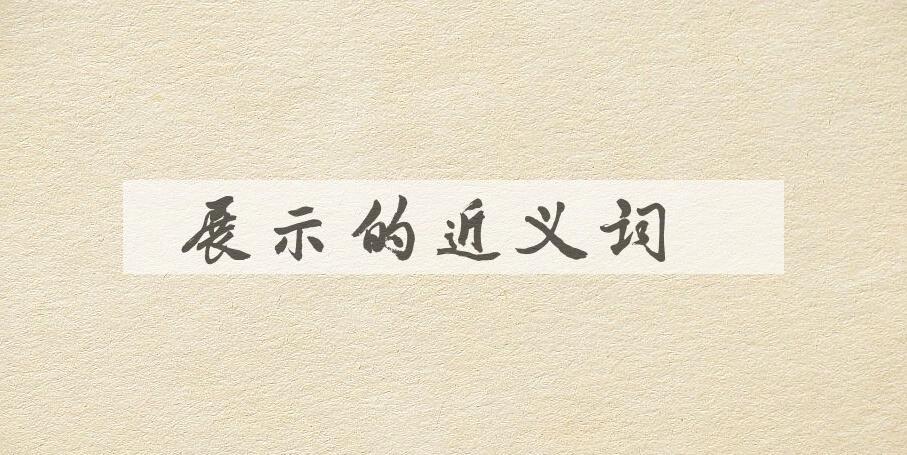 展示的近义词